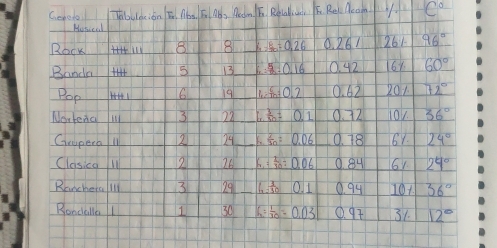 Genero Musical Tabulación Fr. Abs. Fr. Abs. Acom. Fr. Relativa Fr. Rel. Acom. % C°
Rock 8 8 8/30=0.26 0.26% 26% 96°
Banda 5 13 =0.16 0.42 16% 60°
Pop 6 19 =0.2 0.62 20% 72°
Norteña III 3 22 3/30= 0.1 0.72 10% 36°
Grupera II 2 24 2/30= 0.06 0.78 6% 24°
Clasica II 2 26 2/30= 0.06 0.84 6% 24°
Ranchera III 3 29 3/30= 0.1 0.94 10% 36°
Rondalla I 1 30 1/30= 0.03 0.97 3% 12°